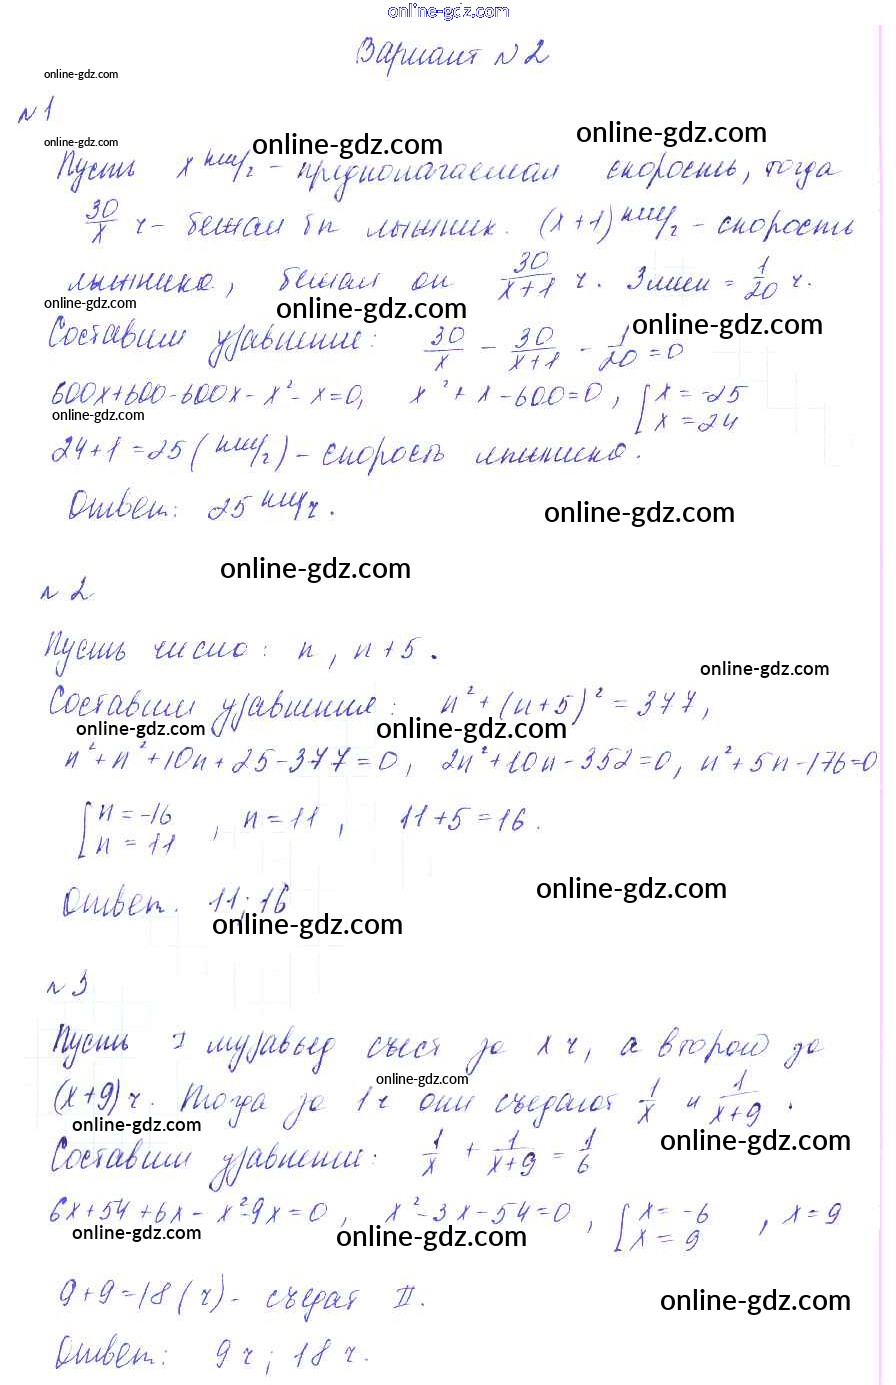 online-gdz.com
Вариант №2
online-gdz.com
№1
online-gdz.com
online-gdz.com
online-gdz.com
Пусть x км/г - предполагаемая скорость, тогда
30/x ч - бежал бы лыжник. (x+1) км/г - скорость
лыжника, бежал он 30/(x+1) ч. 3 мин = 1/20 ч.
online-gdz.com
online-gdz.com
online-gdz.com
Составим уравнение: 30/x - 30/(x+1) - 1/20 = 0
600x+600-600x-x²-x=0, x²+x-600=0, [x=-25
x=24
online-gdz.com
24+1=25 (км/г) - скорость лыжника.
Ответ: 25 км/ч.
online-gdz.com
online-gdz.com
№2
Пусть число: n, n+5.
online-gdz.com
Составим уравнение: n²+(n+5)²=377,
online-gdz.com
online-gdz.com
n²+n²+10n+25-377=0, 2n²+10n-352=0, n²+5n-176=0
[n=-16
n=11, n=11, 11+5=16.
online-gdz.com
Ответ. 11; 16
online-gdz.com
№3
Пусть I муравьед съест за x ч, а второй за
online-gdz.com
(x+9) ч. Тогда за 1 ч они съедают 1/x и 1/(x+9).
online-gdz.com
online-gdz.com
Составим уравнение: 1/x + 1/(x+9) = 1/6
6x+54+6x-x²-9x=0, x²-3x-54=0, [x=-6
x=9, x=9
online-gdz.com
online-gdz.com
9+9=18 (ч) - съедат II.
online-gdz.com
Ответ: 9 ч; 18 ч.